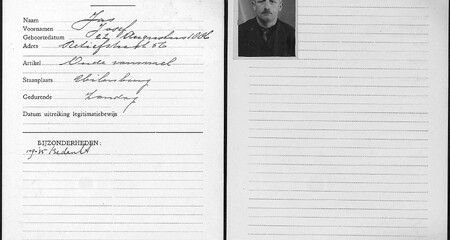 Naam Jas
Voornamen Josef
Geboortedatum 22 Augustus 1886
Adres
Artikel Oude rommel
Standplaats
Gedurende Zondag
Datum uitreiking legitimatiebewijs
BIJZONDERHEDEN:
Bedankt